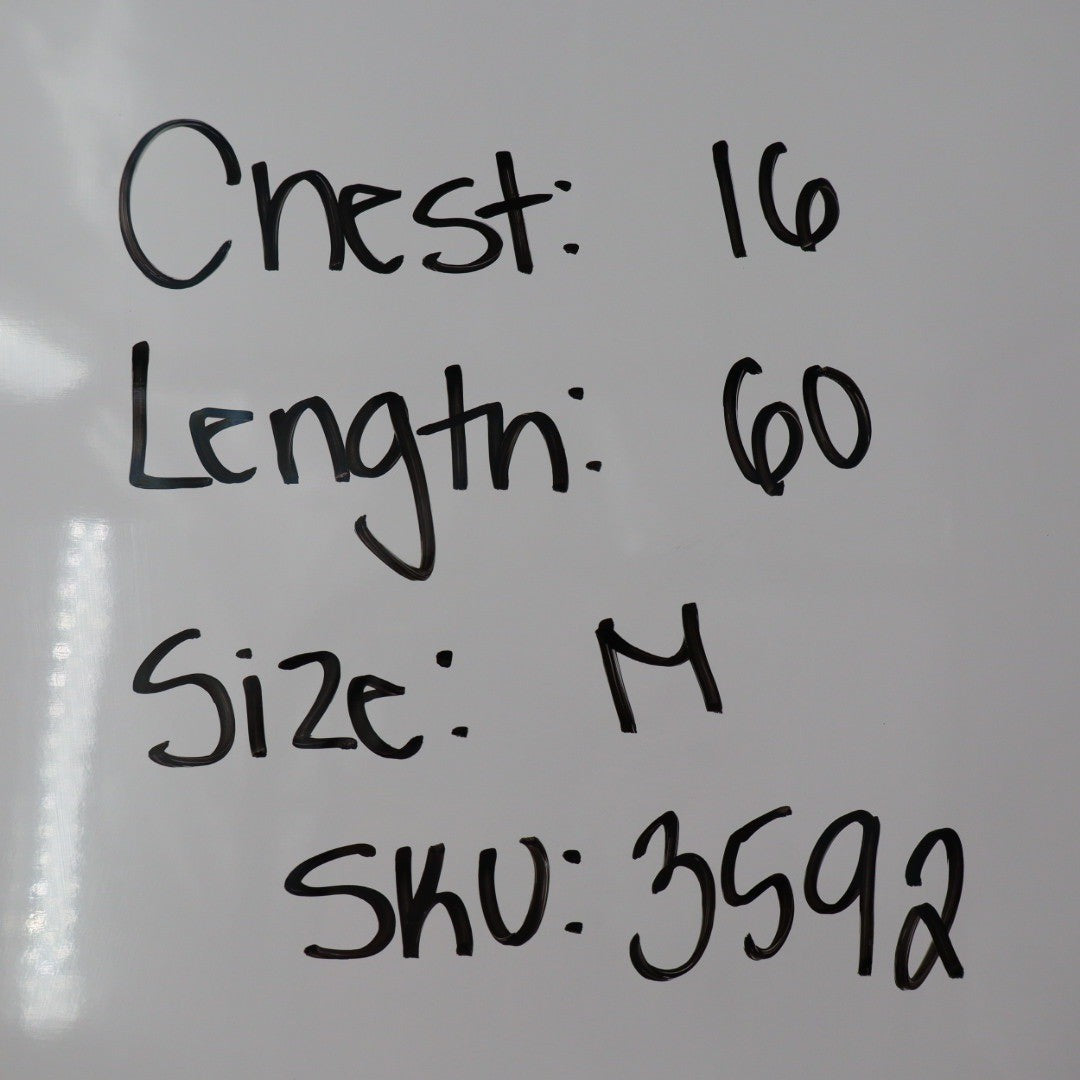 Chest: 16
Length: 60
Size: M
SKU: 3592